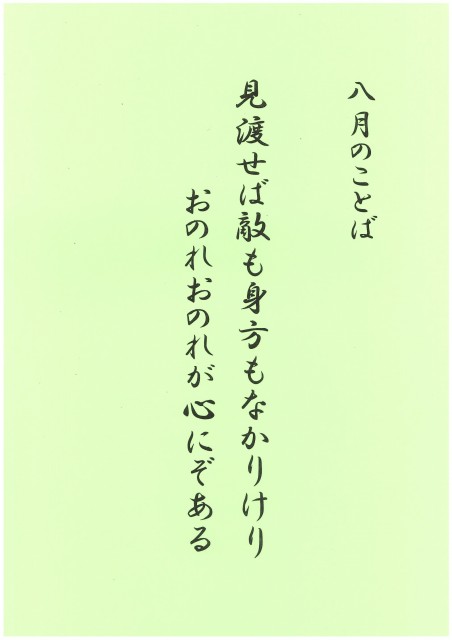 八月のことば
見渡せば敵も身方もなかりけり
おのれおのれが心にぞある